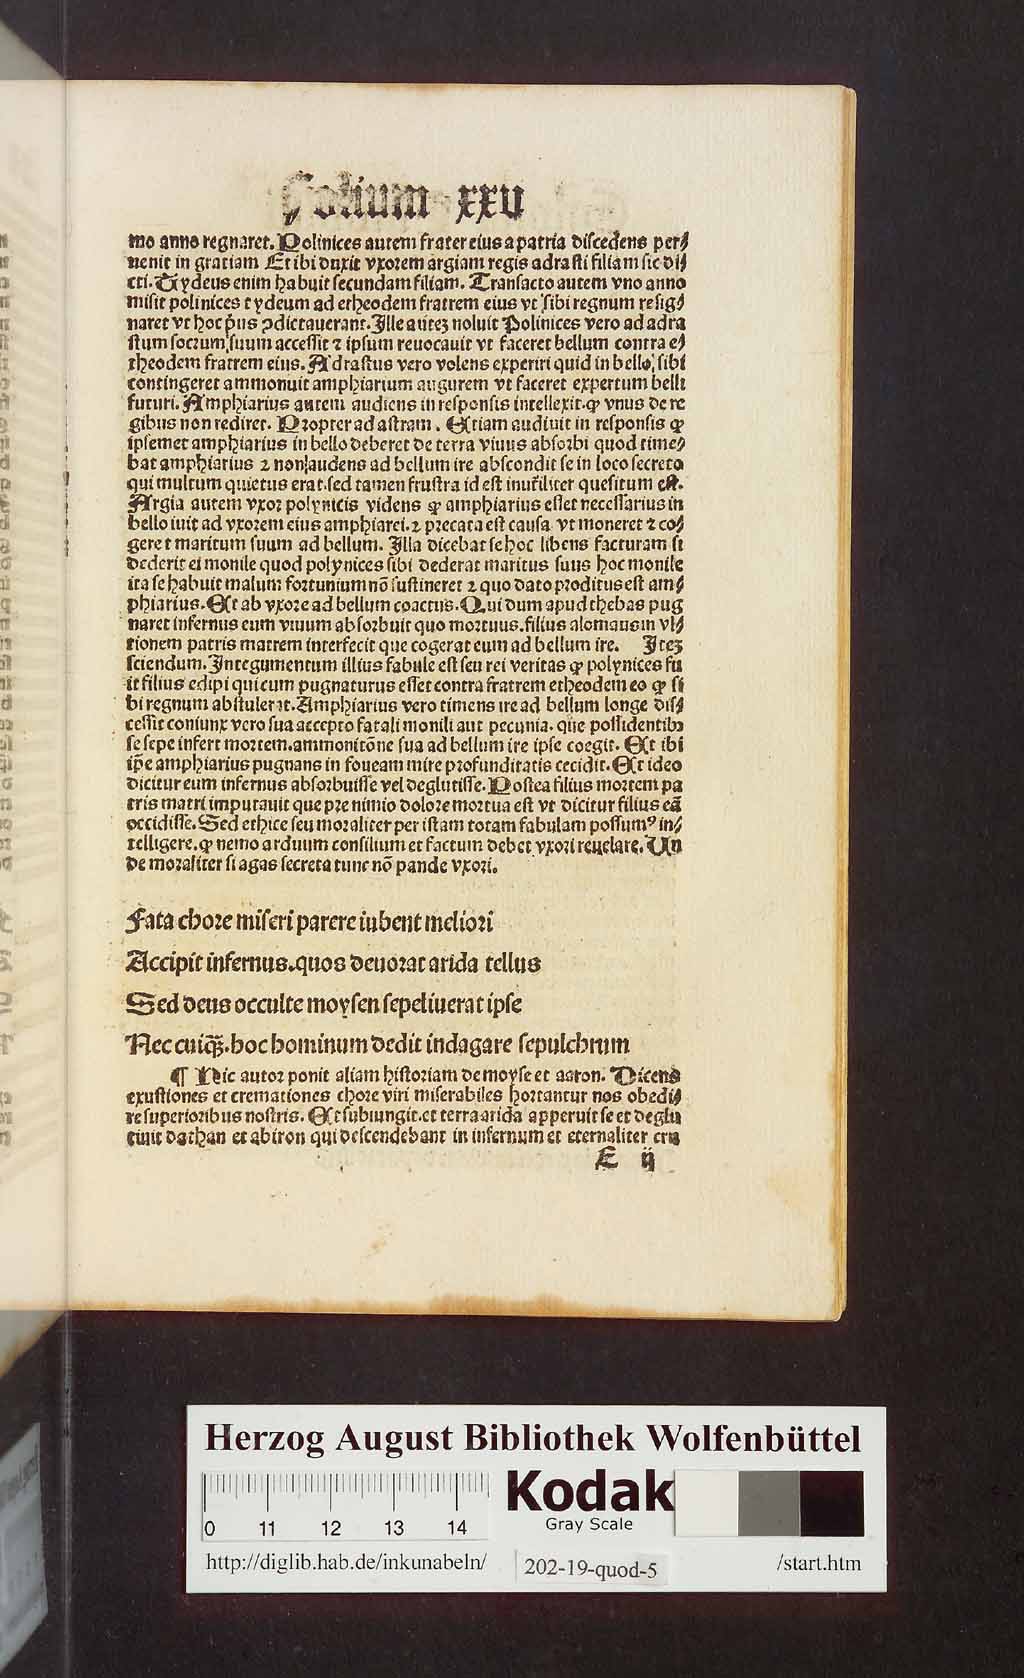 Folium xxv
mo anno regnaret. Polinices autem frater eius a patria discedens per⸗
uenit in gratiam Et ibi duxit vxorem argiam regis adrasti filiam sic di⸗
cti. Tydeus enim habuit secundam filiam. Transacto autem vno anno
misit polinices tydeum ad etheodem fratrem eius vt sibi regnum resig⸗
naret vt hoc pͥus ꝯdictauerant. Ille auteȝ noluit Polinices vero ad adra
stum socrum suum accessit ⁊ ipsum reuocauit vt faceret bellum contra e⸗
theodem fratrem eius. Adrastus vero volens experiri quid in bello sibi
contingeret ammonuit amphiarium augurem vt faceret expertum belli
futuri. Amphiarius autem audiens in responsis intellexit. ꝙ vnus de re
gibus non rediret. Propter adastram. Etiam audiuit in responsis ꝙ
ipsemet amphiarius in bello deberet de terra viuus absorbi quod time⸗
bat amphiarius ⁊ non audens ad bellum ire abscondit se in loco secreto
qui multum quietus erat. sed tamen frustra id est inutiliter quesitum est.
Argia autem vxor polynicis videns ꝙ amphiarius esset necessarius in
bello iuit ad vxorem eius amphiarei. ⁊ precata est causa vt moneret ⁊ co⸗
geret maritum suum ad bellum. Illa dicebat se hoc libens facturam si
dederit ei monile quod polynices sibi dederat maritus suus hoc monile
ita se habuit malum fortunium nō sustineret ⁊ quo dato proditus est am⸗
phiarius. Et ab vxore ad bellum coactus. Qui dum apud thebas pug
naret infernus eum viuum absorbuit quo mortuus. filius alomaus in vl⸗
tionem patris matrem interfecit que cogerat eum ad bellum ire. Iteȝ
sciendum. Integumentum illius fabule est seu rei veritas ꝙ polynices fu
it filius edipi qui cum pugnaturus esset contra fratrem etheodem eo ꝙ si
bi regnum abstulerat. Amphiarius vero timens ire ad bellum longe dis⸗
cessit coniunx vero sua accepto fatali monili aut pecunia. que possidentibꝰ
se sepe infert mortem. ammonitōne sua ad bellum ire ipse coegit. Et ibi
ip̄e amphiarius pugnans in foueam mire profunditatis cecidit. Et ideo
dicitur eum infernus absorbuisse vel deglutisse. Postea filius mortem pa
tris matri imputauit que pre nimio dolore mortua est vt dicitur filius eā
occidisse. Sed ethice seu moraliter per istam totam fabulam possumꝰ in⸗
telligere. ꝙ nemo arduum consilium et factum debet vxori reuelare. Un
de moraliter si agas secreta tunc nō pande vxori.
Fata chore miseri parere iubent meliori
Accipit infernus. quos deuorat arida tellus
Sed deus occulte moysen sepeliuerat ipse
Nec cuiqȝ̄. hoc hominum dedit indagare sepulchrum
¶ Hic autor ponit aliam historiam de moyse et aaron. Dicens
exustiones et cremationes chore viri miserabiles hortantur nos obedi⸗
re superioribus nostris. Et subiungit. et terra arida apperuit se et deglu
tiuit dathan et abiron qui descendebant in infernum et eternaliter cru
E ij
Herzog August Bibliothek Wolfenbüttel
0 11 12 13 14
Kodak
Gray Scale
http://diglib.hab.de/inkunabeln/
202-19-quod-5
/start.htm